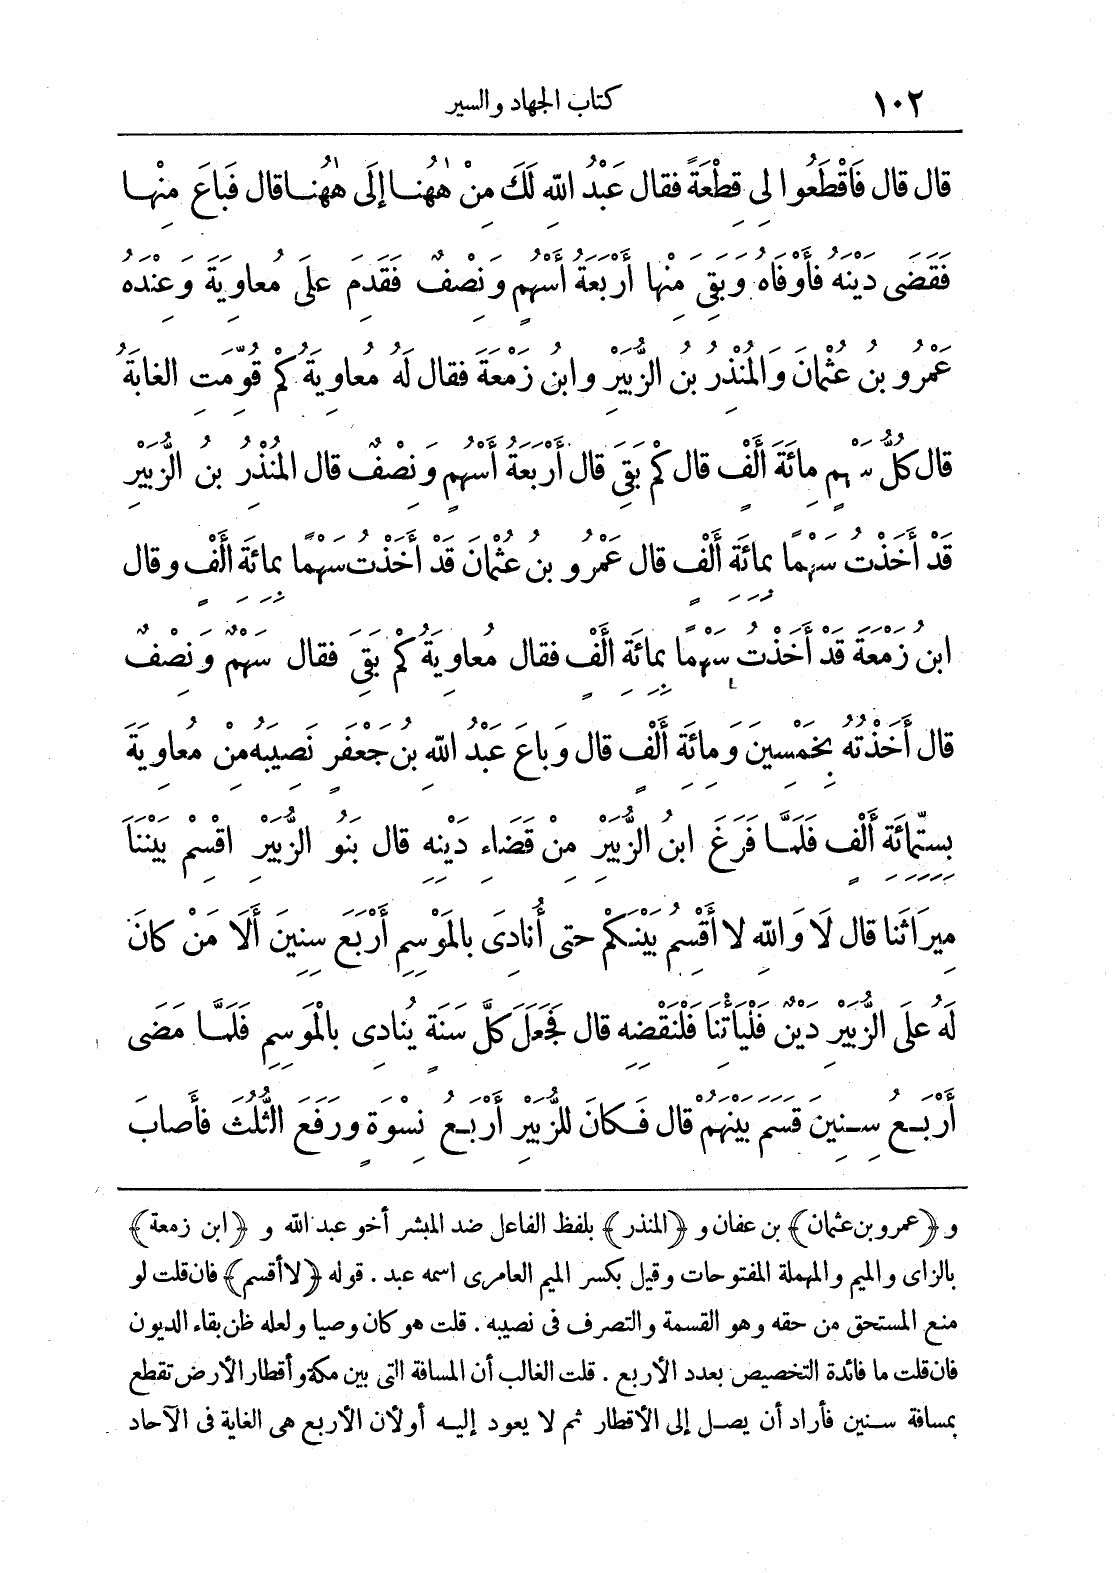 ١٠٢ كتاب الجهاد والسير
قال قال فَاقْطَعُوا لِى قِطْعَةً فقال عَبْدُ اللهِ لَكَ مِنْ هٰهُنا إلَى هٰهُنا قال فَباعَ مِنْها
فَقَضَى دَيْنَهُ فَأَوْفَاهُ وَبَقِىَ مِنْها أَرْبَعَةُ أَسْهُمٍ وَنِصْفٌ فَقَدِمَ عَلَى مُعاوِيَةَ وَعِنْدَهُ
عَمْرُو بنُ عُثْمانَ وَالمُنْذِرُ بنُ الزُّبَيْرِ وابنُ زَمْعَةَ فقال لَهُ مُعاوِيَةُ كَمْ قُوِّمَتِ الغابَةُ
قال كُلُّ سَهْمٍ مِائَةَ أَلْفٍ قال كَمْ بَقِىَ قال أَرْبَعَةُ أَسْهُمٍ وَنِصْفٌ قال المُنْذِرُ بنُ الزُّبَيْرِ
قَدْ أَخَذْتُ سَهْمًا بِمِائَةِ أَلْفٍ قال عَمْرُو بنُ عُثْمانَ قَدْ أَخَذْتُ سَهْمًا بِمِائَةِ أَلْفٍ وقال
ابنُ زَمْعَةَ قَدْ أَخَذْتُ سَهْمًا بِمِائَةِ أَلْفٍ فقال مُعاوِيَةُ كَمْ بَقِىَ فقال سَهْمٌ وَنِصْفٌ
قال أَخَذْتُهُ بِخَمْسِينَ وَمِائَةِ أَلْفٍ قال وَباعَ عَبْدُ اللهِ بنُ جَعْفَرٍ نَصِيبَهُ مِنْ مُعاوِيَةَ
بِسِتِّمِائَةِ أَلْفٍ فَلَمَّا فَرَغَ ابنُ الزُّبَيْرِ مِنْ قَضاءِ دَيْنِهِ قال بَنُو الزُّبَيْرِ اقْسِمْ بَيْنَنا
مِيرَاثَنا قال لَا وَاللهِ لا أَقْسِمُ بَيْنَكُمْ حتى أُنادِىَ بِالمَوْسِمِ أَرْبَعَ سِنِينَ أَلَا مَنْ كانَ
لَهُ عَلَى الزُّبَيْرِ دَيْنٌ فَلْيَأْتِنا فَلْنَقْضِهِ قال فَجَعَلَ كُلَّ سَنَةٍ يُنادِى بِالْمَوسِمِ فَلَمَّا مَضَى
أَرْبَعُ سِنِينَ قَسَمَ بَيْنَهُمْ قال فَكانَ لِلزُّبَيْرِ أَرْبَعُ نِسْوَةٍ وَرَفَعَ الثُّلُثَ فَأَصابَ
و ﴿عمرو بن عثمان﴾ بن عفان و ﴿المنذر﴾ بلفظ الفاعل ضد المبشر أخو عبد الله و ﴿ابن زمعة﴾
بالزاى والميم والمهملة المفتوحات وقيل بكسر الميم العامرى اسمه عبد . قوله ﴿لا أقسم﴾ فان قلت لو
منع المستحق من حقه وهو القسمة والتصرف فى نصيبه . قلت هو كان وصيا ولعله ظن بقاء الديون
فان قلت ما فائدة التخصيص بعدد الأربع . قلت الغالب أن المسافة التى بين مكة وأقطار الأرض تقطع
بمسافة سنين فأراد أن يصل إلى الأقطار ثم لا يعود إليه أو لأن الأربع هى الغاية فى الآحاد